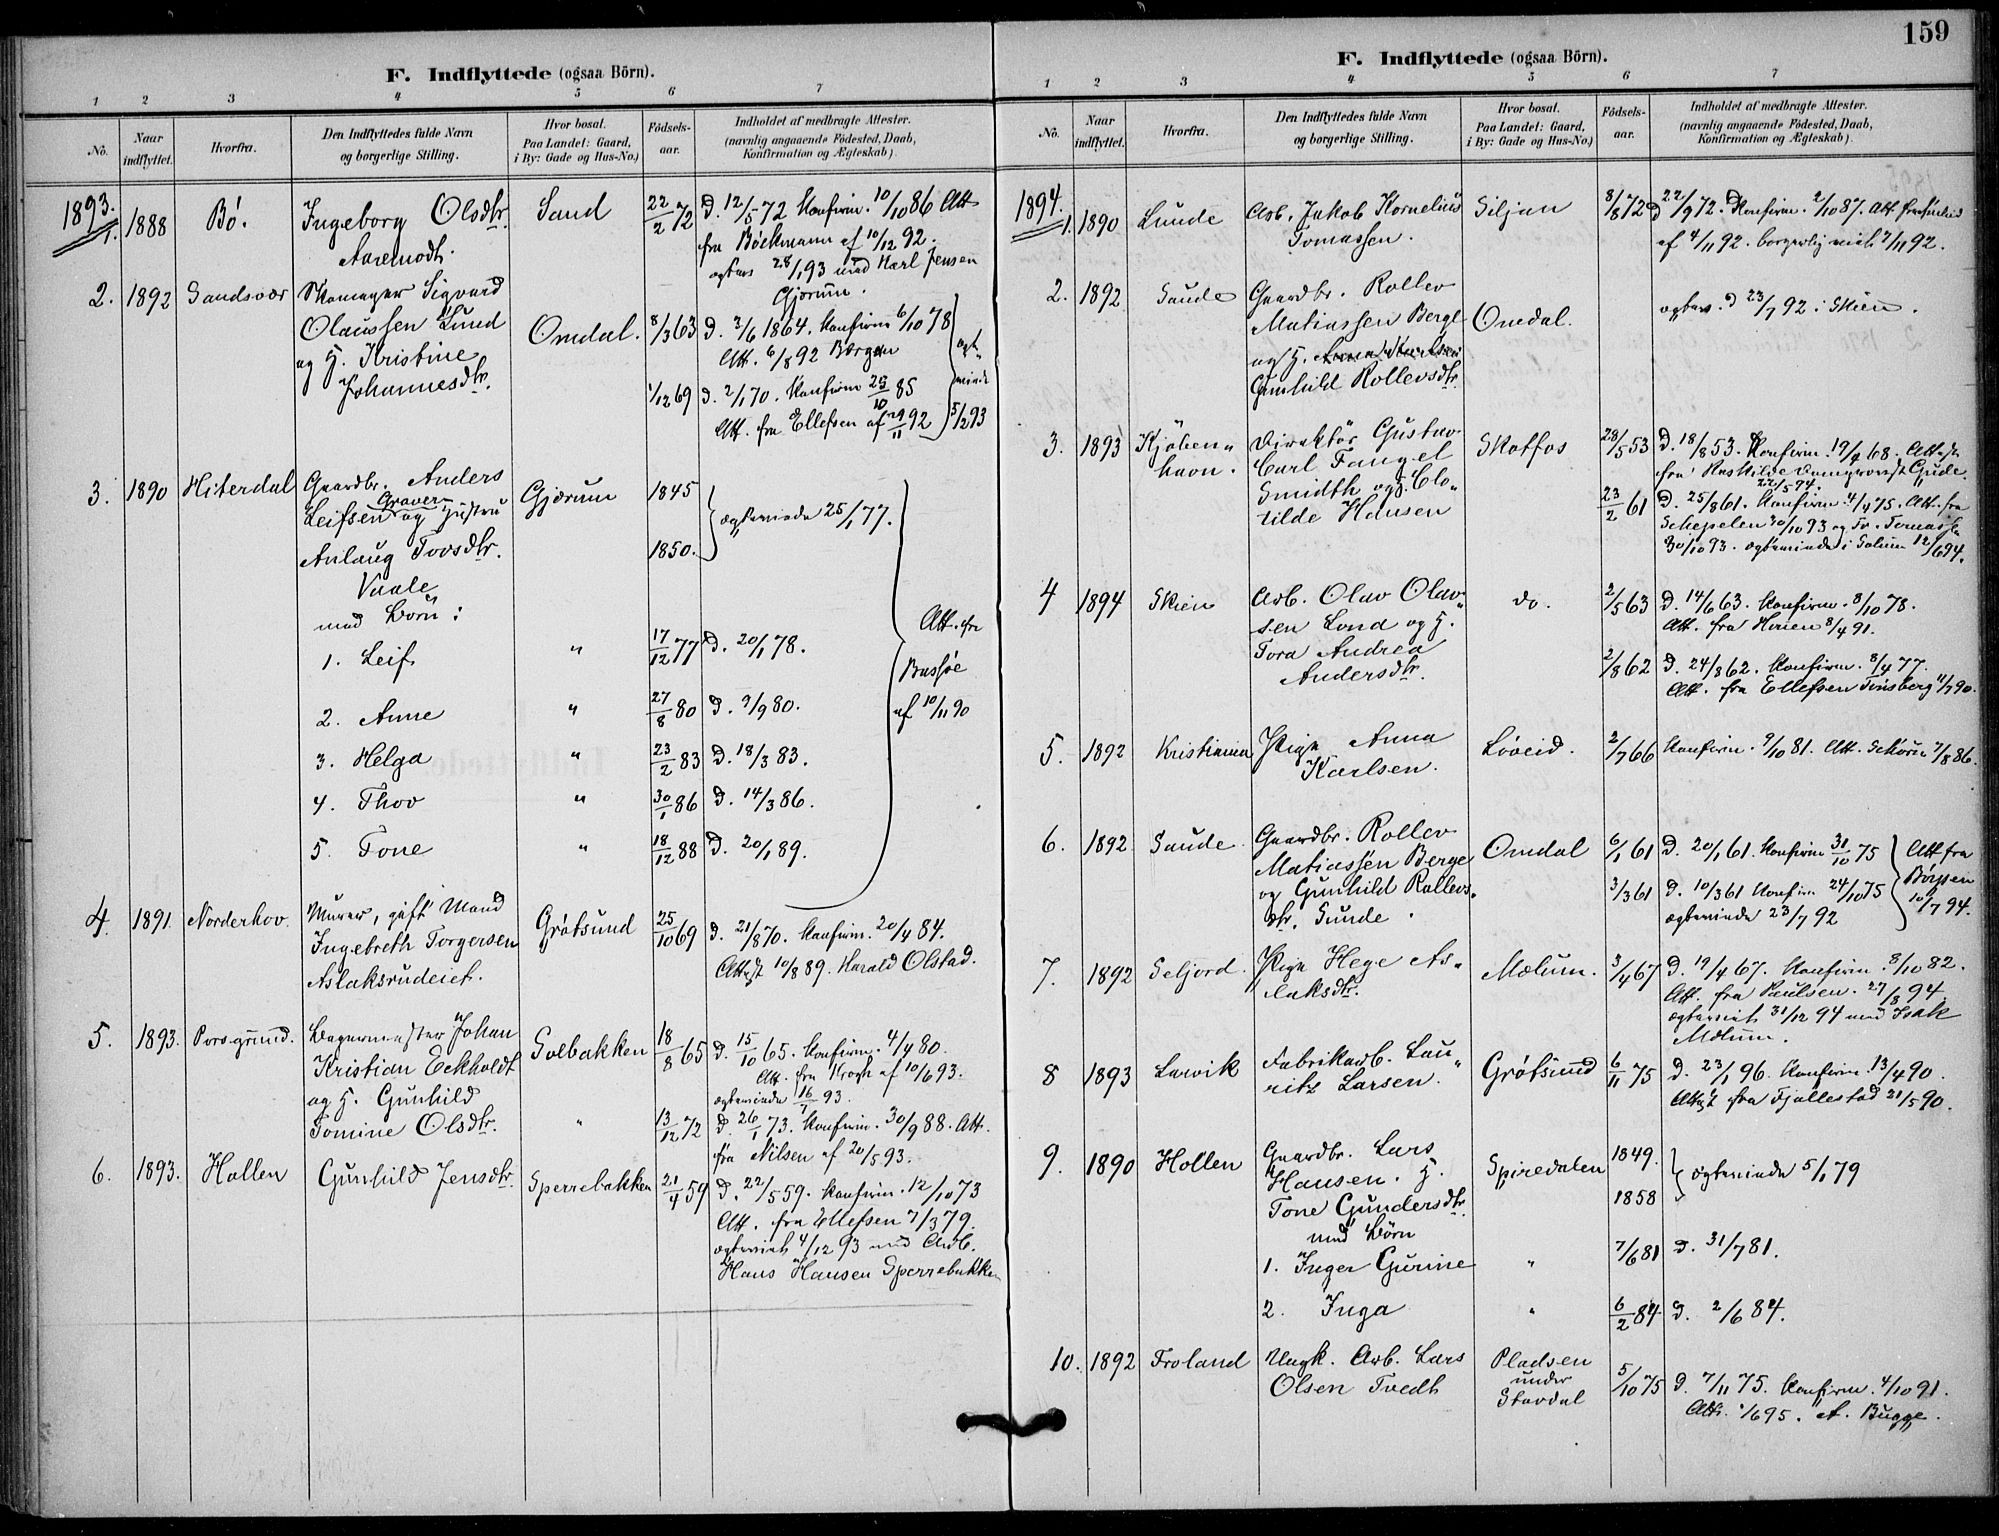 F. Indflyttede (ogsaa Börn).
1 2 3 4 5 6 7
No. Naar indflyttet. Hvorfra. Den Indflyttedes fulde Navn og borgerlige Stilling. Hvor bosat. Paa Landet: Gaard, i By: Gade og Hus-No.) Födsels-aar. Indholdet af medbragte Attester. (navnlig angaaende Födested, Daab, Konfirmation og Ægteskab).
1893.
1. 1888 Bö. Ingeborg Olsdtr. Sand 22/2 72 D. 12/5 72 Konfirm. 10/10 86 Att.
fra Böckmann af 10/12 92.
28/1 93 med Karl Jensen
Gjorum.
2. 1892 Sandsvær Skomager Sigvard
Olaussen Lund Omdal. 8/3 63 D. 3/6 1864. Konfirm 6/10 78
og H. Kristine Att. 6/8 92
Johannesdtr. 1/12 69 D. 2/1 70. Konfirm 25/10 85
Att. fra Ellefsen af 29/11 92 5/2 93
3. 1890 Hiterdal Gaardbr. Anders Gjærum 1845
Leifsen Graver og Hustru ægteviede 25/1 77.
Anlaug Tovsdtr. 1850.
Vaale
med Börn:
1. Leif " 17/12 77 D. 20/1 78. Att. fra
2. Anne " 27/8 80 D. 9/9 80. Bassöe af 10/11 90
3. Helga " 23/2 83 D. 18/3 83.
4. Thov " 30/1 86 D. 14/3 86.
5. Tone " 18/12 88 D. 20/1 89.
4. 1891. Norderhov. Murer, gift Mand Grötsund 25/10 69 D. 21/8 70. Konfirm. 20/4 84.
Ingebreth Torgersen Attest 10/8 89. Harald Olstad.
Aslaksrudeiet.
5. 1893. Porsgrund. Bagermester Johan Solbakken 18/8 65 D. 15/10 65. Konfirm. 4/4 80.
Kristian Eckholdt Att. fra Krogh af 10/6 93.
og H. Gunhild ægteviede 16/7 93.
Tomine Olsdtr. " 13/12 72 D. 26/1 73. Konfirm. 30/9 88. Att.
fra Nilsen af 20/5 93.
6. 1893. Hollen Gunhild Jensdtr. Sperrebakken 21/4 59 D. 22/5 59. Konfirm. 12/10 73
Att. fra Ellefsen 7/3 79.
ægteviet 4/12 93 med Arb.
Hans Hansen Sperrebakken
159
F. Indflyttede (ogsaa Börn).
1 2 3 4 5 6 7
No. Naar indflyttet. Hvorfra. Den Indflyttedes fulde Navn og borgerlige Stilling. Hvor bosat. Paa Landet: Gaard, i By: Gade og Hus-No.) Födsels-aar. Indholdet af medbragte Attester. (navnlig angaaende Födested, Daab, Konfirmation og Ægteskab).
1894.
1. 1890 Lunde Arb. Jakob Kornelius Siljan 8/8 72 D 22/9 72. Konfirm. 2/10 87. Att.
Tomassen. af 4/11 92. borgerlig viet 7/11 92.
2. 1892 Saude Gaardbr. Rollev
Matiassen Berge Omdal. 23/7 92 i Skien.
og H.
Gunhild Rollevsdtr.
3. 1893 Kjöben- Direktör Gustav Skotfos 28/5 53 D. 18/8 53. Konfirm. 19/4 68. Attest
havn. Carl Fangel fra Roskilde Gude
Smidth og H. Clo- 22/5 94.
tilde Hansen 23/2 61 D. 25/8 61. Konfirm. 4/4 75. Att. fra
Schepelen 30/10 93 og
30/10 93. ægteviede i Solum 12/6 94.
4 1894 Skien Arb. Olav Olav- do. 2/5 63 D. 14/6 63. Konfirm. 8/10 78.
sen Lond og H. Att. fra 8/4 91.
Tora Andrea 2/8 62 D. 24/8 62. Konfirm. 8/4 77.
Andersdtr. Att. fra Ellefsen Tönsberg 11/7 90.
5. 1892 Kristiania Pige Anna Löveid. 2/7 66 Konfirm. 9/10 81. Att. 7/8 86.
Karlsen.
6. 1892 Saude Gaardbr. Rollev Omdal 6/1 61 D. 20/1 61. Konfirm 31/10 75 Att fra
Matiassen Berge 3/3 61 D. 10/3 61 Konfirm 24/10 75 Börsen
og Gunhild Rollevs- ægteviede 23/7 92 10/7 94.
dtr. Sunde
7. 1892 Seljord. Pige Hege As- Mælum. 3/4 67 D. 19/4 67. Konfirm. 8/10 82.
laksdtr. Att. fra Paulsen. 27/8 94
ægteviet 31/12 94 med Isak
Mælum.
8 1893 Larvik Fabrikarb. Lau- Grötsund 6/11 75 D. 23/1 96. Konfirm. 13/4 90.
ritz Larsen. Attest fra Fjallestad 21/5 90.
9. 1890 Hollen Gaardbr. Lars Spiredalen 1849. ægteviede 5/1 79
Hansen. H.
Tone Gundersdtr. 1858
med Börn
1. Inger Gurine " 7/6 81 D. 31/7 81.
2. Inga " 6/2 84 D. 2/6 84.
10. 1892 Froland Ungk. Arb. Lars Pladsen
Olsen Tvedt under 5/10 75 D. 7/11 75. Konfirm. 4/10 91.
Stavdal Att. 1/6 95. A. Bugge.